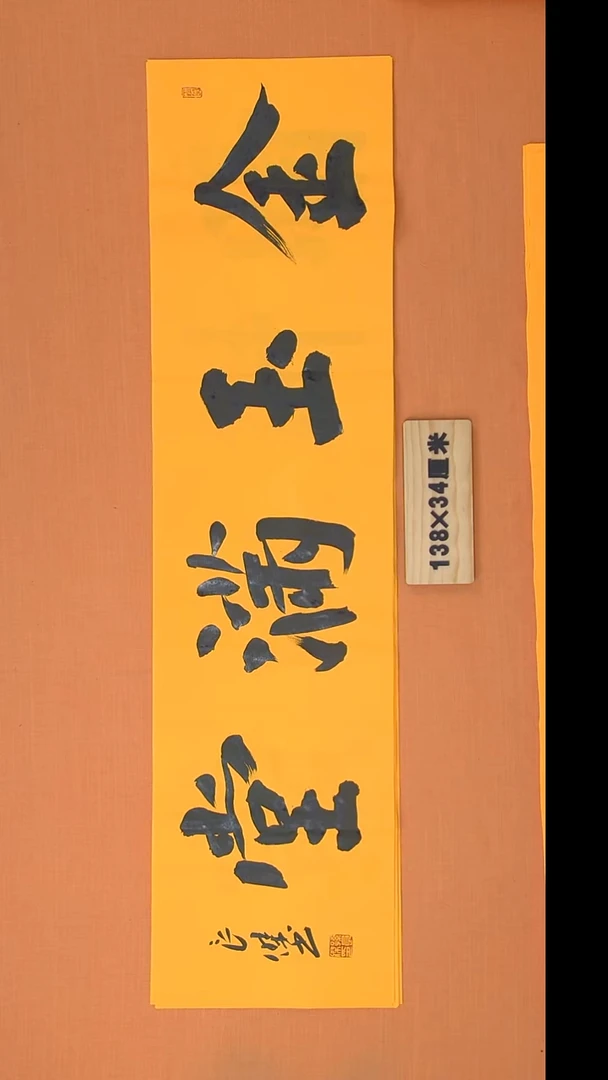 金玉滿堂
138×34厘米